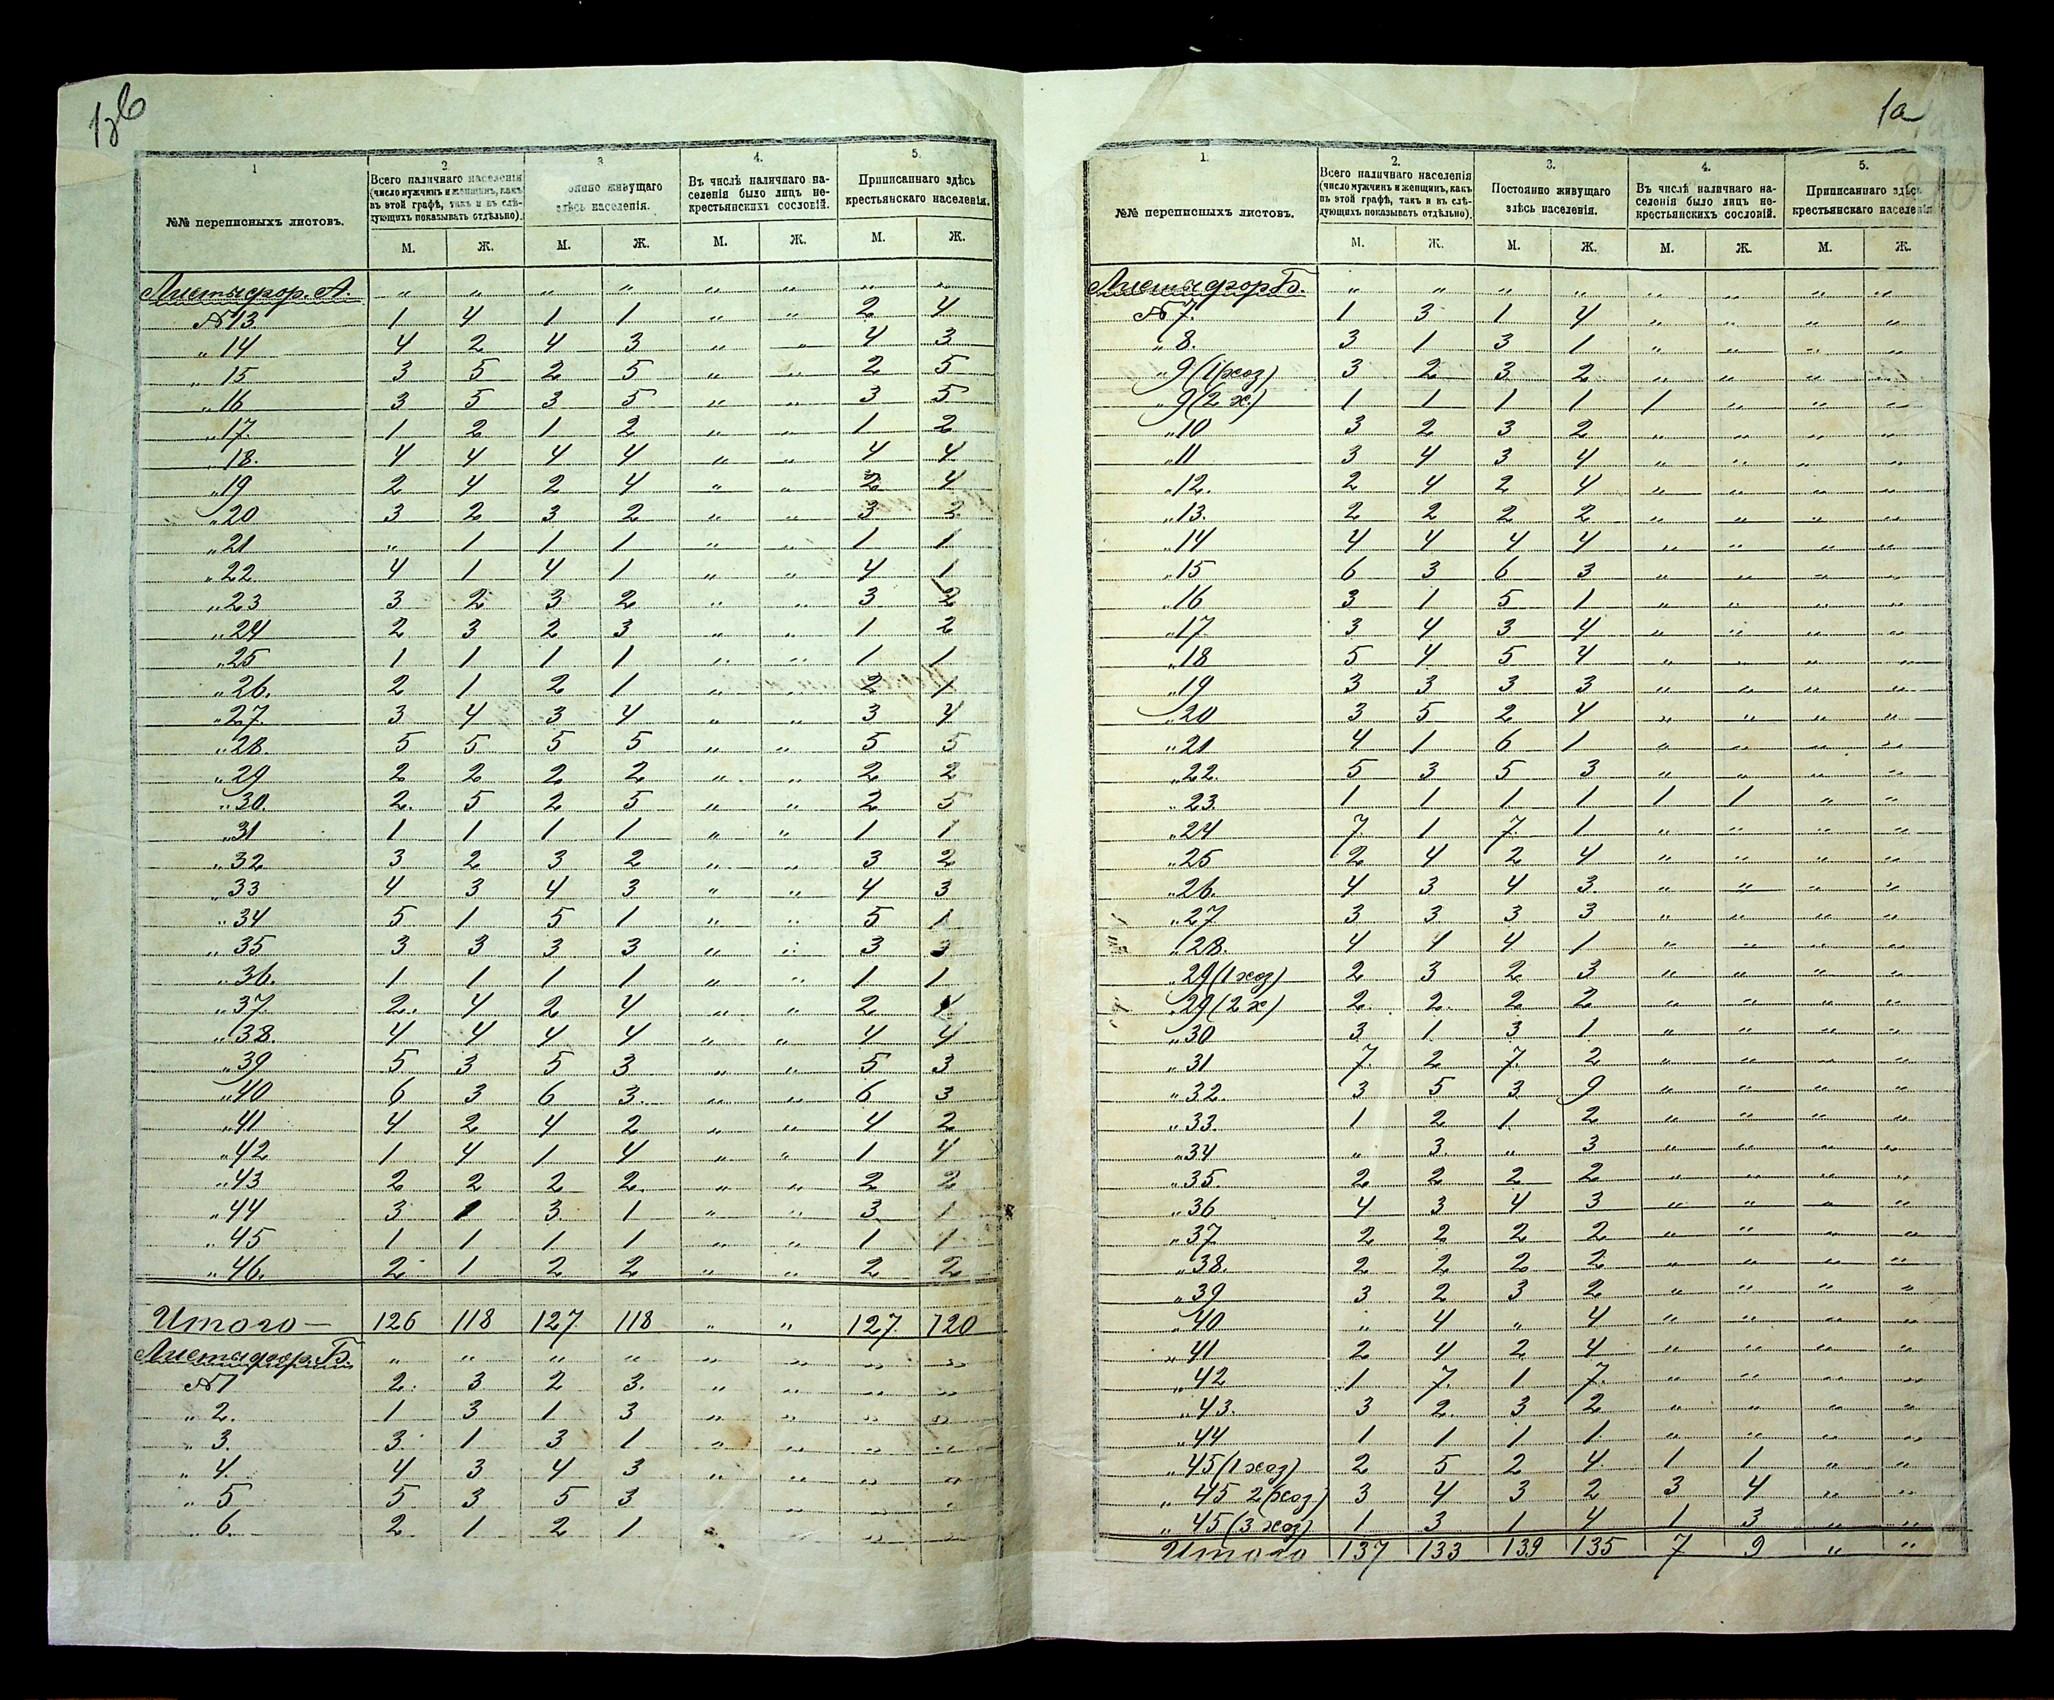 1а
1
2
3
4.
5.
№№ переписныхъ листовъ.
Всего наличнаго населенія (число мужчинъ и женщинъ, какъ въ этой графѣ, такъ и въ слѣдующихъ показывать отдѣльно).
живущаго здѣсь населенія.
Въ числѣ наличнаго населенія было лицъ некрестьянскихъ сословій.
Приписаннаго здѣсь крестьянскаго населенія.
М. Ж. М. Ж. М. Ж. М. Ж.
Листы фор. А. " " " " " " " "
№ 13. 1 4 1 1 " " 2 4
" 14 4 2 4 3 " " 4 3
" 15 3 5 2 5 " " 2 5
" 16 3 5 3 5 " " 3 5
" 17. 1 2 1 2 " " 1 2
" 18. 4 4 4 4 " " 4 4
" 19 2 4 2 4 " " 2 4
" 20 3 2 3 2 " " 3 2
" 21 " 1 1 1 " " 1 1
" 22 4 1 4 1 " " 4 1
" 23 3 2 3 2 " " 3 2
" 24 2 3 2 3 " " 1 2
" 25 1 1 1 1 " " 1 1
" 26. 2 1 2 1 " " 2 1
" 27. 3 4 3 4 " " 3 4
" 28. 5 5 5 5 " " 5 5
" 29 2 2 2 2 " " 2 2
" 30. 2 5 2 5 " " 2 5
" 31 1 1 1 1 " " 1 1
" 32 3 2 3 2 " " 3 2
" 33 4 3 4 3 " " 4 3
" 34 5 1 5 1 " " 5 1
" 35 3 3 3 3 " " 3 3
" 36. 1 1 1 1 " " 1 1
" 37. 2 4 2 4 " " 2 4
" 38. 4 4 4 4 " " 4 4
" 39 5 3 5 3 " " 5 3
" 40 6 3 6 3 " " 6 3
" 41 4 2 4 2 " " 4 2
" 42 1 4 1 4 " " 1 4
" 43 2 2 2 2 " " 2 2
" 44 3 1 3 1 " " 3 1
" 45 1 1 1 1 " " 1 1
" 46. 2 1 2 2 " " 2 2
Итого — 126 118 127 118 " " 127 120
Листы фор. Б. " " " " " " " "
№ 1 2 3 2 3 " " " "
" 2. 1 3 1 3 " " " "
" 3. 3 1 3 1 " " " "
" 4. 4 3 4 3 " " " "
" 5 5 3 5 3 " " "
" 6. 2 1 2 1 " " " "
1.
2.
3.
4.
5.
№№ переписныхъ листовъ.
Всего наличнаго населенія (число мужчинъ и женщинъ, какъ въ этой графѣ, такъ и въ слѣдующихъ показывать отдѣльно).
Постоянно живущаго здѣсь населенія.
Въ числѣ наличнаго населенія было лицъ некрестьянскихъ сословій.
Приписаннаго здѣсь крестьянскаго населенія
М. Ж. М. Ж. М. Ж. М. Ж.
Листы фор Б. " " " " " " " "
№ 7. 1 3 1 4 " " " "
" 8. 3 1 3 1 " " " "
" 9 (1 хоз) 3 2 3 2 " " " "
" 9 (2 х.) 1 1 1 1 1 " " "
" 10 3 2 3 2 " " " "
" 11 3 4 3 4 " " " "
" 12. 2 4 2 4 " " " "
" 13. 2 2 2 2 " " " "
" 14 4 4 4 4 " " " "
" 15 6 3 6 3 " " " "
" 16 3 1 5 1 " " " "
" 17. 3 4 3 4 " " " "
" 18 5 4 5 4 " " " "
" 19 3 3 3 3 " " " "
" 20 3 5 2 4 " " " "
" 21 4 1 6 1 " " " "
" 22. 5 3 5 3 " " " "
" 23. 1 1 1 1 1 1 " "
" 24 7. 1 7. 1 " " " "
" 25 2 4 2 4 " " " "
" 26. 4 3 4 3. " " " "
" 27 3 3 3 3 " " " "
" 28. 4 1 4 1 " " " "
" 29 (1 хоз) 2 3 2 3 " " " "
" 29 (2 х) 2 2 2 2 " " " "
" 30 3 1 3 1 " " " "
" 31 7. 2 7. 2 " " " "
" 32. 3 5 3 9 " " " "
" 33. 1 2 1 2 " " " "
" 34 " 3 " 3 " " " "
" 35. 2 2 2 2 " " " "
" 36 4 3 4 3 " " " "
" 37 2 2 2 2 " " " "
" 38. 2 2 2 2 " " " "
" 39 3 2 3 2 " " " "
" 40 " 4 " 4 " " " "
" 41 2 4 2 4 " " " "
" 42 1 7. 1 7. " " " "
" 43. 3 2 3 2 " " " "
" 44 1 1 1 1 " " " "
" 45 (1 хоз) 2 5 2 4 1 1 " "
" 45 2 (хоз.) 3 4 3 2 3 4 " "
" 45 (3 хоз) 1 3 1 4 1 3 " "
Итого 137 133 139 135 7 9 " "